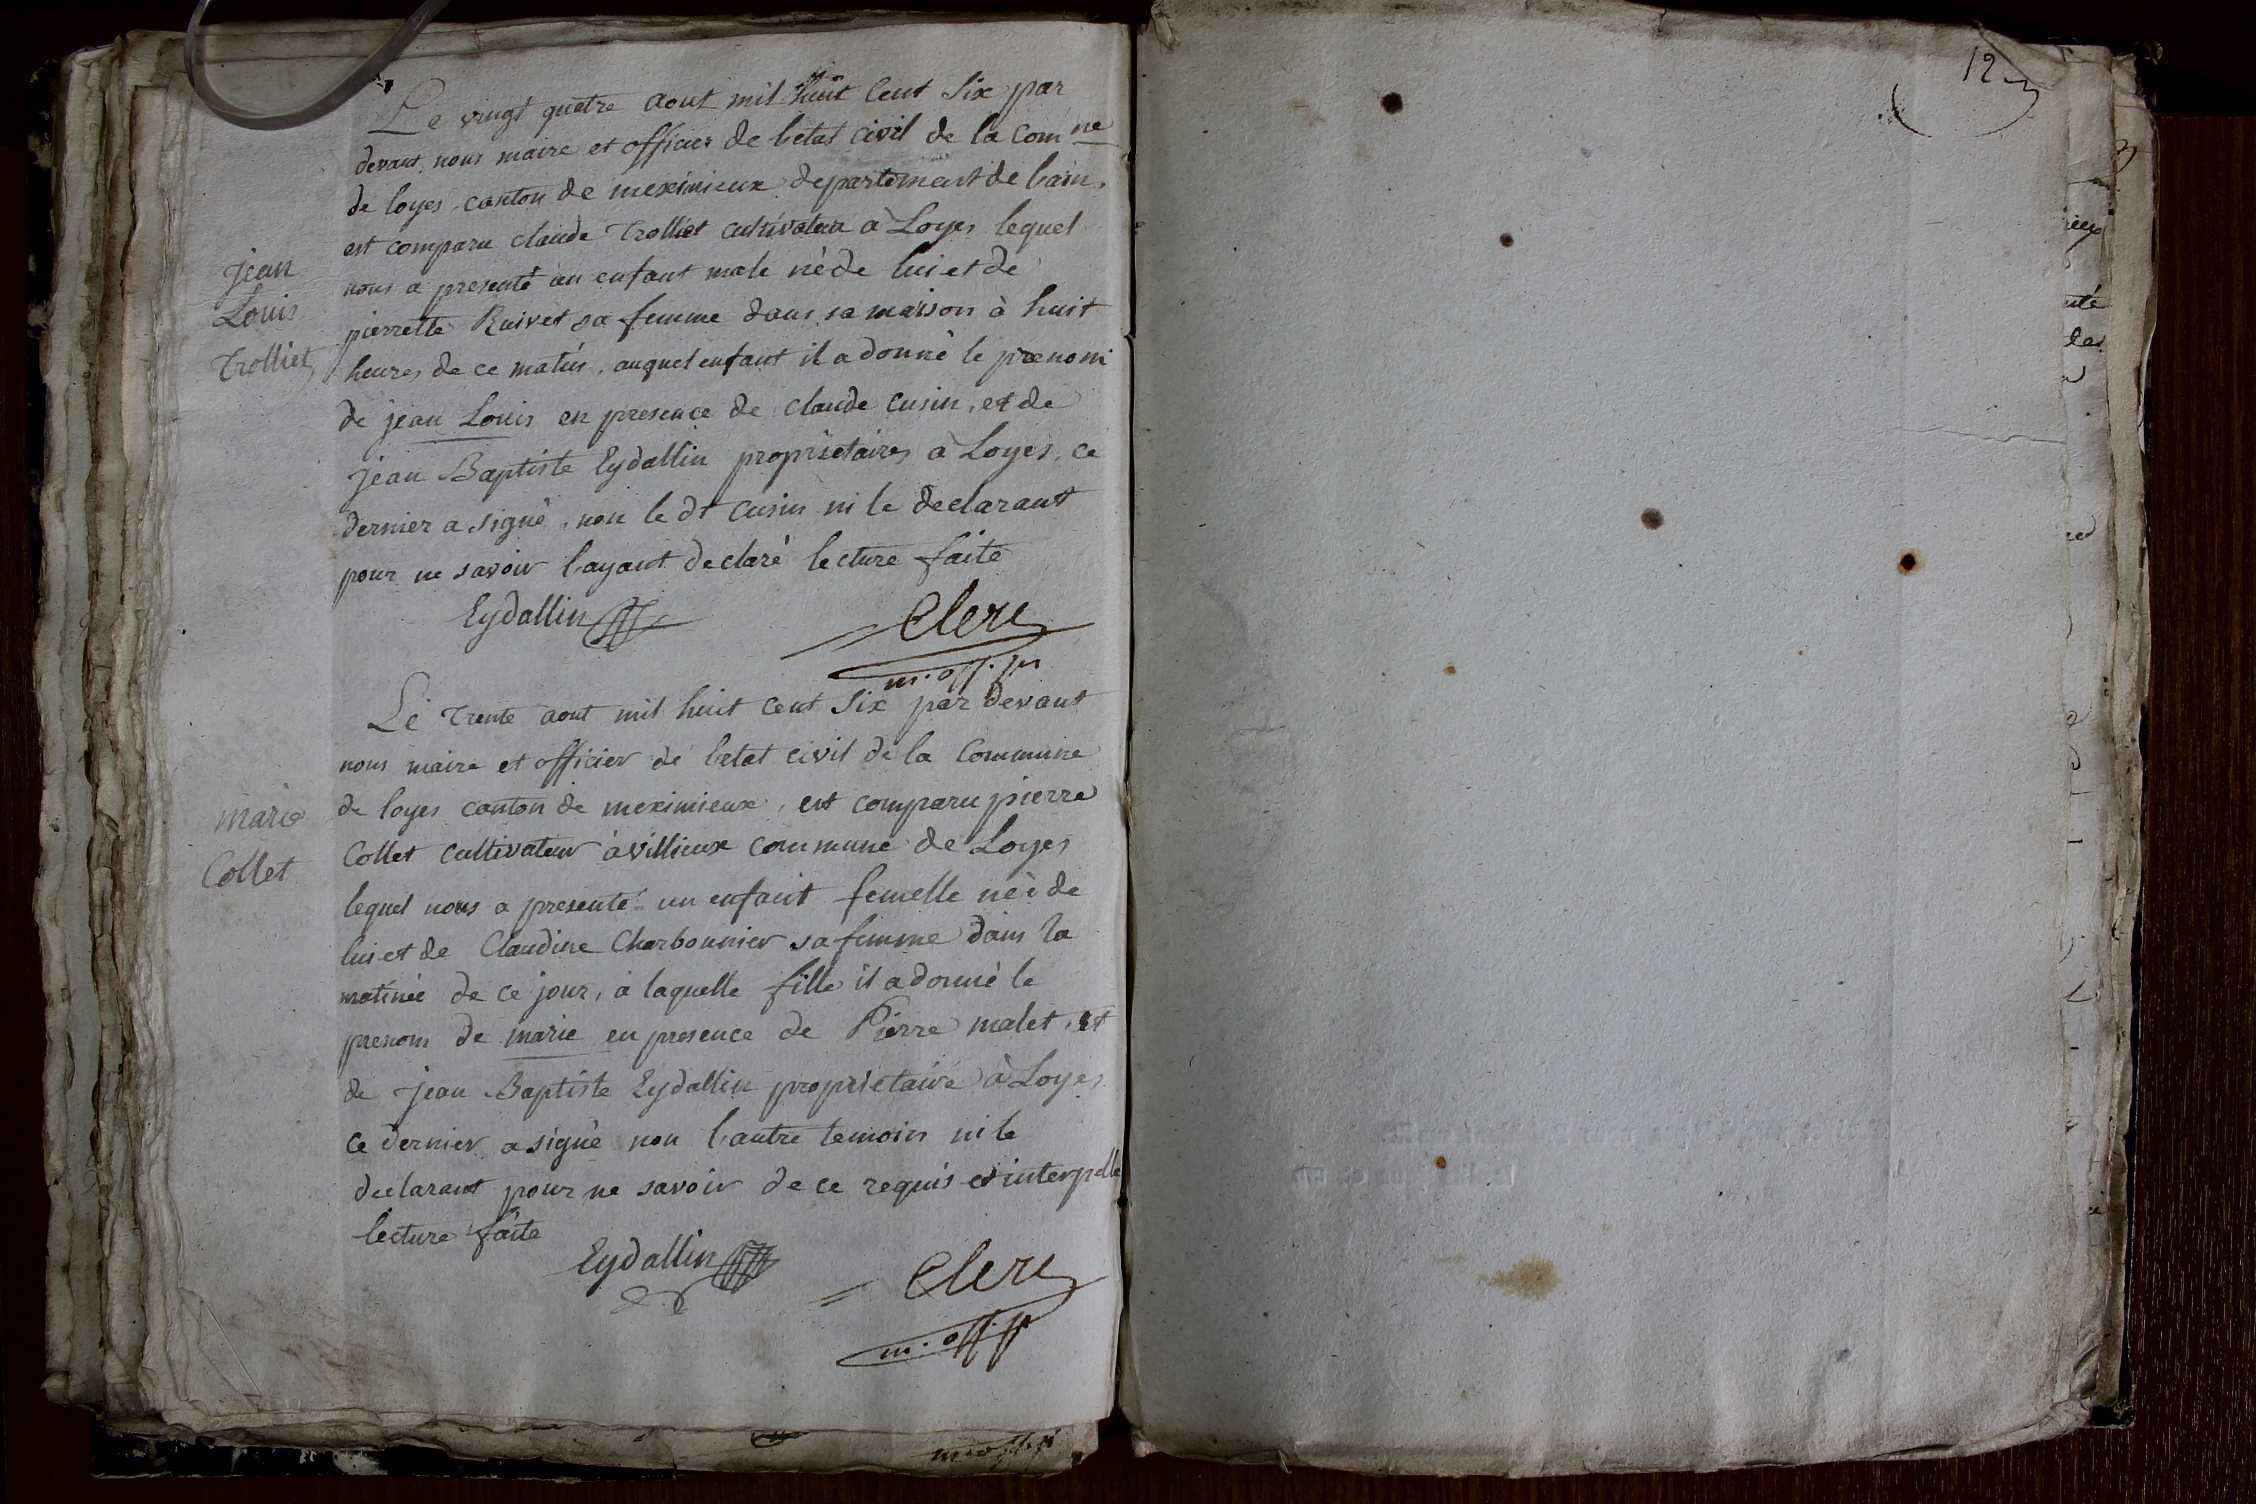 Le vingt quatre aout mil huit cent Six par
devant nous maire et officier de letat civil de la Comne
de loyes, canton de meximieux departement de lain,
est comparu claude Trolliet cultivateur à Loyes lequel
nous a presenté un enfant male né de lui et de
pierrette Ruivet sa femme dans sa maison à huit
heures de ce matin, auquel enfant il a donné le prenom
de jean Louis en presence de claude cusin, et de
jean Baptiste Eydallin proprietaires à Loyes, ce
dernier a signé, non le dt cusin ni le declarant
pour ne savoir layant declaré lecture faite
Jean
Louis
Trolliet
Eydallin
Clerc
m. off. p
Le trente aout mil huit cent Six par devant
nous maire et officier de letat civil de la Commune
de loyes canton de meximieux, est comparu pierre
Collet cultivateur à villieux commune de Loyes
lequel nous a presenté un enfant femelle née de
lui et de Claudine Charbonnier sa femme dans la
matinée de ce jour, à laquelle fille il a donné le
prenom de marie en presence de Pierre malet, et
de jean Baptiste Eydallin proprietaire à Loyes
ce dernier a signé non lautre temoin ni le
declarant pour ne savoir de ce requis et interpellé
lecture faite
marie
Collet
Eydallin
Clerc
m. off. p
12